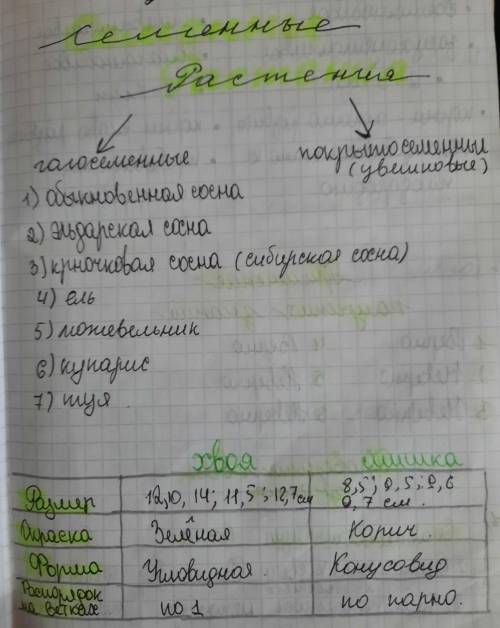 Семенные
Растения
голосеменные
покрытосеменные
(цветковые)
1) обыкновенная сосна
2) эльдарская сосна
3) крючковая сосна (сибирская сосна)
4) ель
5) можевельник
6) купарис
7) туя
хвоя шишка
Размер 12,10, 14; 11,5; 12,7 см 8,5; 9,5; 9,6
9,7 см.
Окраска Зелёная Корич.
Форма Угловидная. Конусовид
Распорядок
на ветках по 1 по парно.